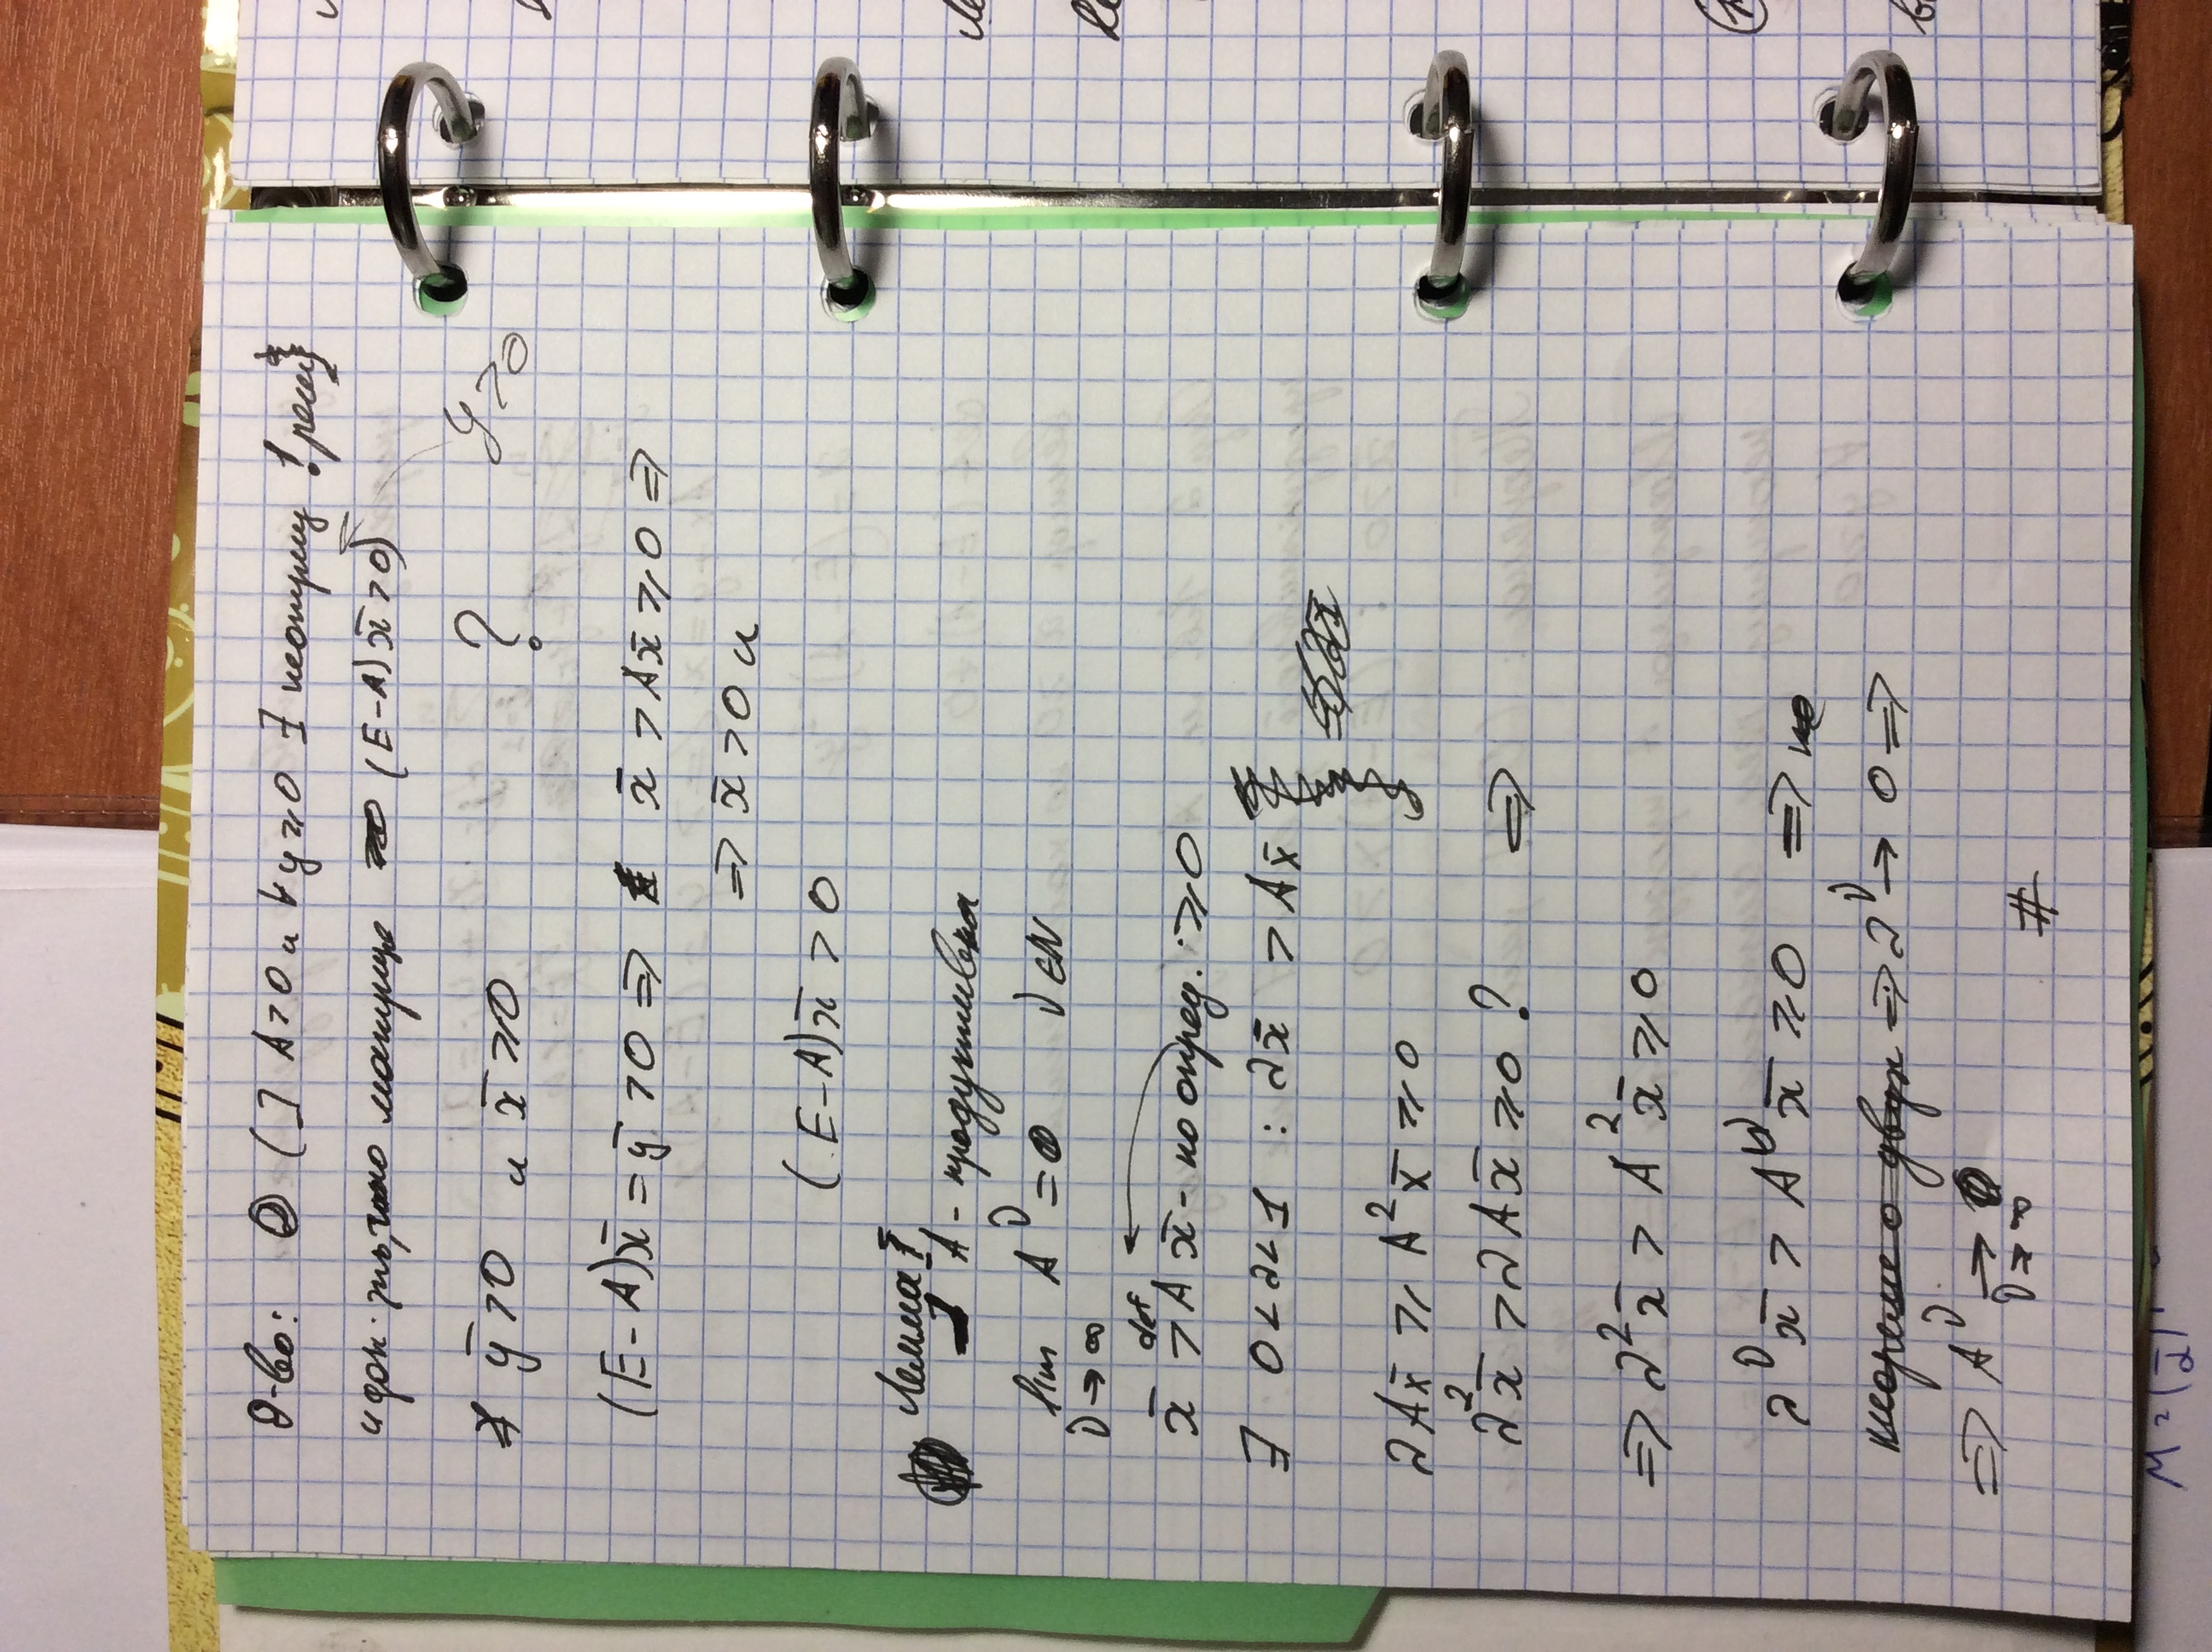 Д-во: ② (] A>0 и ∀y≥0 ∃ неотриц !реш}
и док-ть, что матрице (E-A)x̄>0)
y≥0
ȳ>0 и x̄≥0 ?
(E-A)x̄=ȳ>0 ⇒ x̄>Ax̄≥0 ⇒
⇒ x̄>0 и
(E-A)x̄>0
Лемма 1
] A - продуктивна
lim A^ν=0 ν∈N
ν→∞
def
x̄>Ax̄ - по опред. ≥0
∃ 0<λ<1 : λx̄>Ax̄
λAx̄≥A²x̄≥0
λ²x̄>λAx̄≥0 ? ⇒
⇒ λ²x̄>A²x̄≥0
λ^ν x̄>A^ν x̄≥0 ⇒
теореме о двух ⇒ λ^ν→0 ⇒
⇒ A^ν → 0
ν→∞
#
M=(